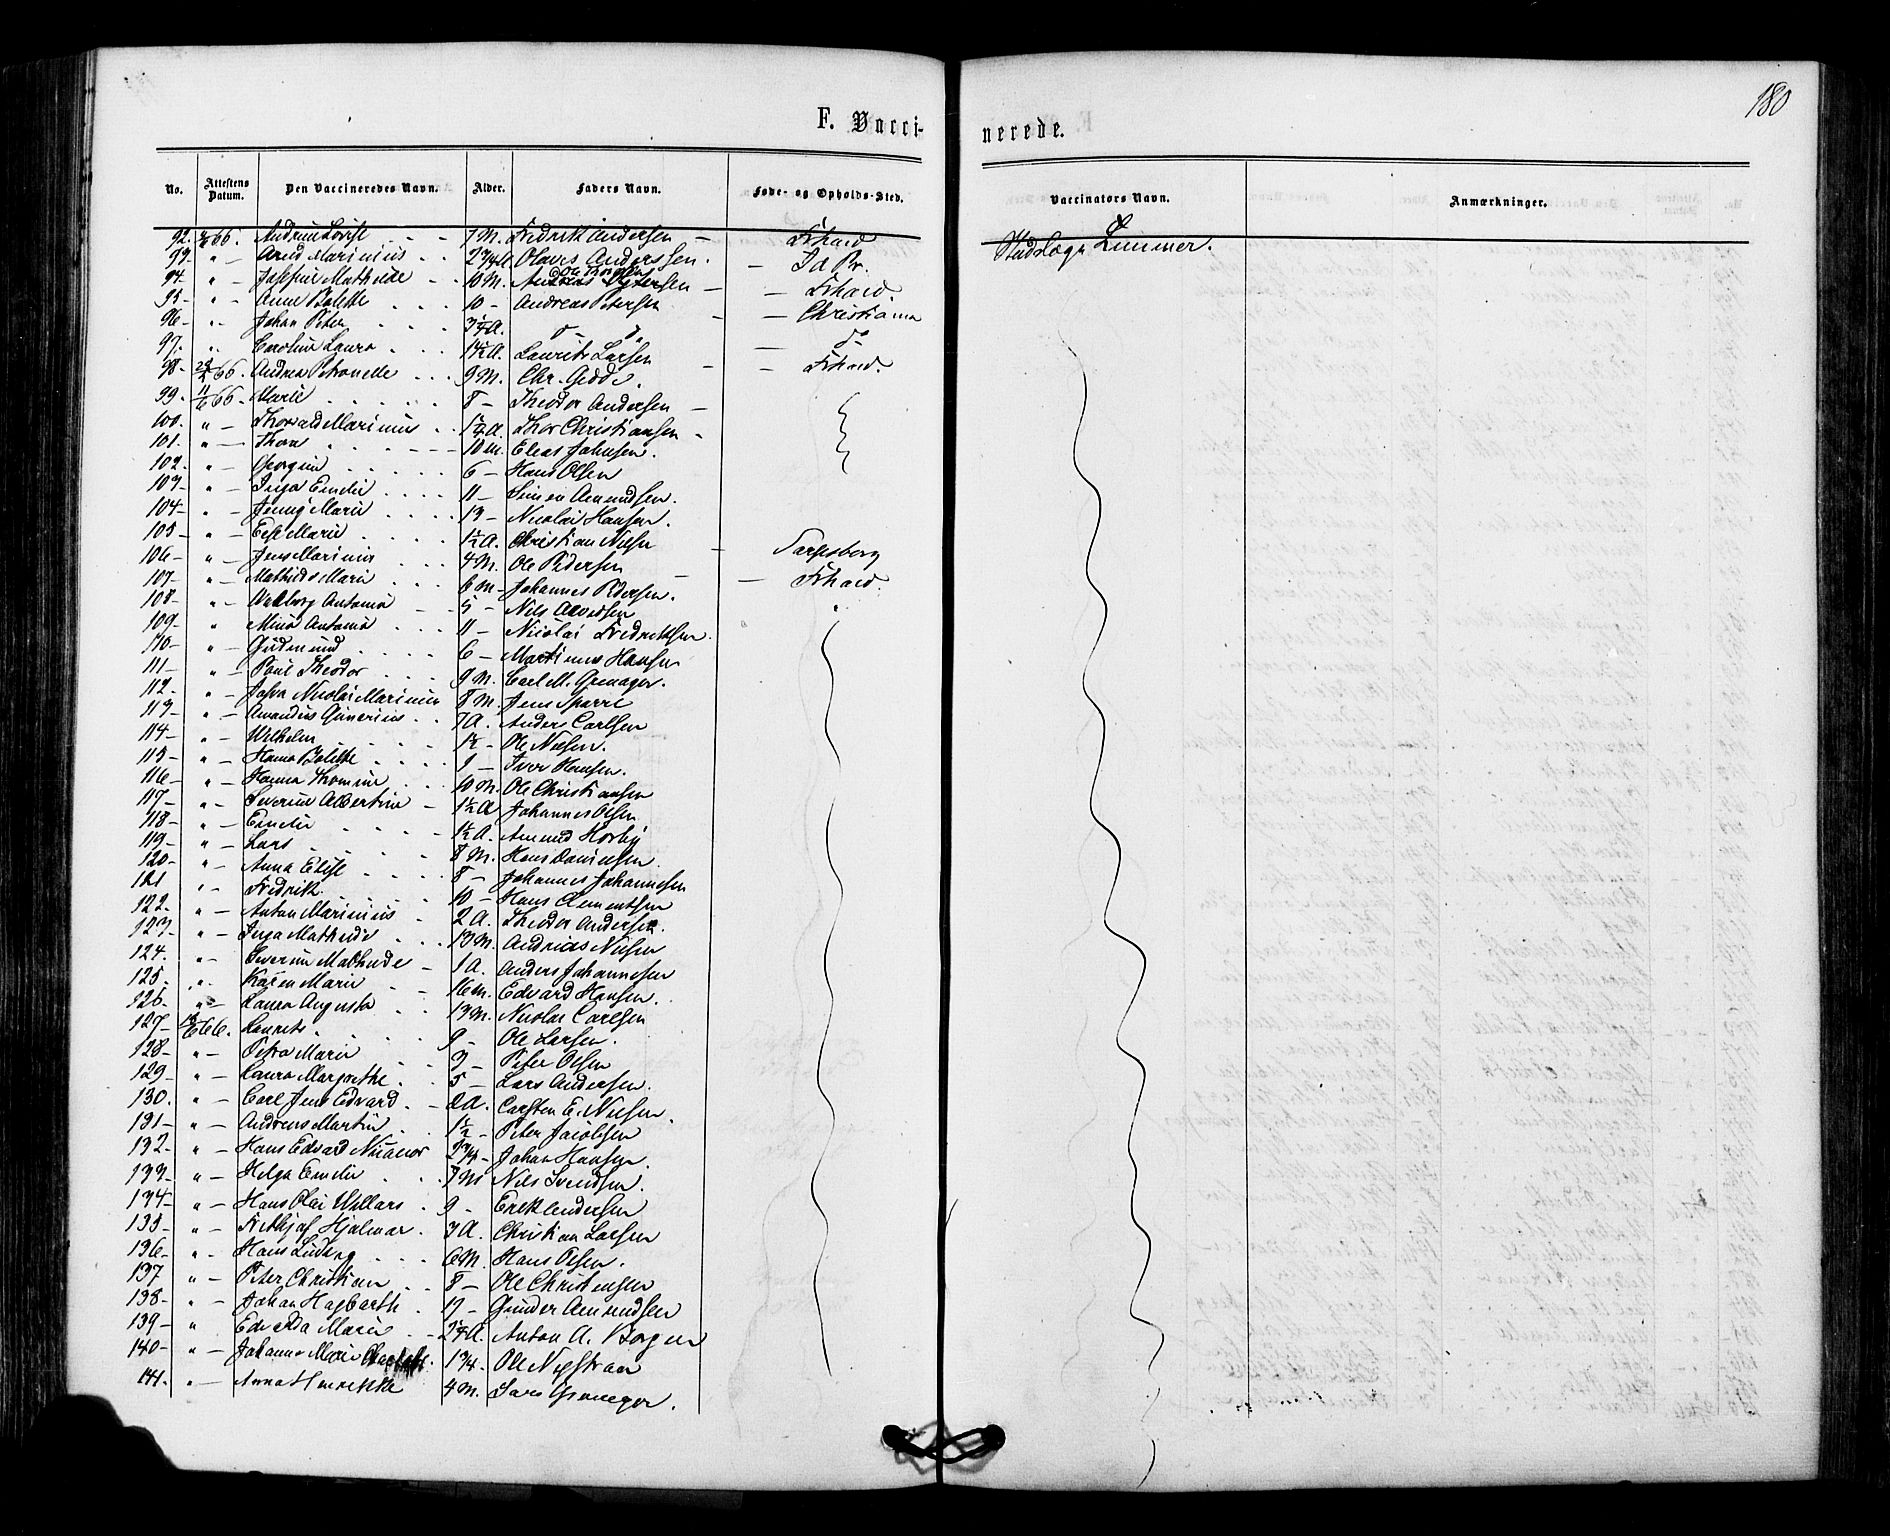 180
F. Vacci-
nerede.
No. Attestens Datum. Den Vaccineredes Navn. Alder. Faders Navn. Føde- og Opholds-Sted. Vaccinators Navn. Anmærkninger.
92. 66. Andrine Lovise 7 M. Fredrik Andersen — Frhald Lummer.
93. " — Marinius 2 3/4 A Olaves Anderssen. — Id Pr.
94. " — Josefine Mathilde 10 M. — Frhald.
95. " — Anne Bolette 10 — Andreas Petersen — Christiania
96. " — Johan Peter 3 1/4 A. do — do — do
97. " Caroline Laura 1 1/2 A. Laurits Larsen — Frhald.
98. 66. Andrea Petronelle 9 M. Chr. Gedde.
99. 66. Marie 8 — Theodor Andersen —
100. " — Thorvald Marinius 1 1/4 A. Thor Christiansen -
101. " — Thora 10 M. Elias Johnsen.
102. " — Georgine 6 — Hans Olsen
103 — " — Inga Emilie 11 — Simen Amundsen.
104 — " — Jenny Marie 13 — Nicolai Hansen.
105 — " — Elise Marie 1 1/2 A. Christian Nilsen — Sarpsborg
106 — " — Jens Marinius 4 M. Ole Pedersen — Frhald.
107 — " — Mathilde Marie 6 M — Johannes Pedersen. "
108 — " — Valborg Antonia 5 — Nils Arvesen
109 — " Mina Antonia 11 — Nicolai Fredriksen.
110 — " — Gudmund 6 — Martinius Hansen
111 — " — Poul Theodor 9 M. Carl M. Grenager.
112. " — Nicolai Marinius 8 M. Jens Sparre
113 — " — Amandus Gunerius 7 A. Anders Carlsen
114 — " — Wilhelm 1 1/2 — Ole Nilsen.
115 — " — Hanna Bolette 1 — Iver Hansen.
116 — " — Hanna Thomine 10 M. Ole Christiansen
117 — " — Severine Albertine — 1 1/2 A Johannes Olsen
118 — " — Emilie 1 1/2 A. Amund Horby
119 — " — Lars 8 M. Hans Danielsen
120 — " Anna Elise 8 — Johannes Johannesen
121 " — Fredrik 10 — Hans Clementsen
122 — " — Anton Marinius 2 A. Theodor Andersen.
123 — " — Inga Mathilde 13 M. Andreas Nilsen
124. " — Severine Mathilde — 1 A. Anders Johannesen
125. " Karen Marie 16 M. Edvard Hansen.
126. " — Laura Augusta 13 M. Nicolai Carlsen
127 — 66. Laurits 9 — Ole Larsen.
128 — " — Petra Marie 3 — Peter Olsen
129 — " — Laura Margrethe 5 — Lars Andersen.
130. " — Carl Jens Edvard 2 A. Carsten E. Nilsen.
131 — " — Andreas Martin 1 1/2 — Peter Jacobsen
132 — " — Hans Edvard Nicanor 2 3/4 — Johan Hansen.
133 — " — Helga Emilie 7 M Nils Svendsen.
134 — " — Hans Olai 9 — Erik Andersen
135 — " — Frithjof Hjalmar. 3 A. Christian Larsen
136 — " — Hans Ludvig 6 M. Hans Olsen.
137 " — Peter Christian 8 — Ole Christensen
138 — " — Johan Hagbarth 19 — Gunder Amundsen
139 — " Edvarda Marie 2 1/4 A. Anton A. Borgen
140 — " — Johanne Marie 1 3/4. Ole Nesstran
141. " — Anna Henrikke 4 M. Lars Grenager.